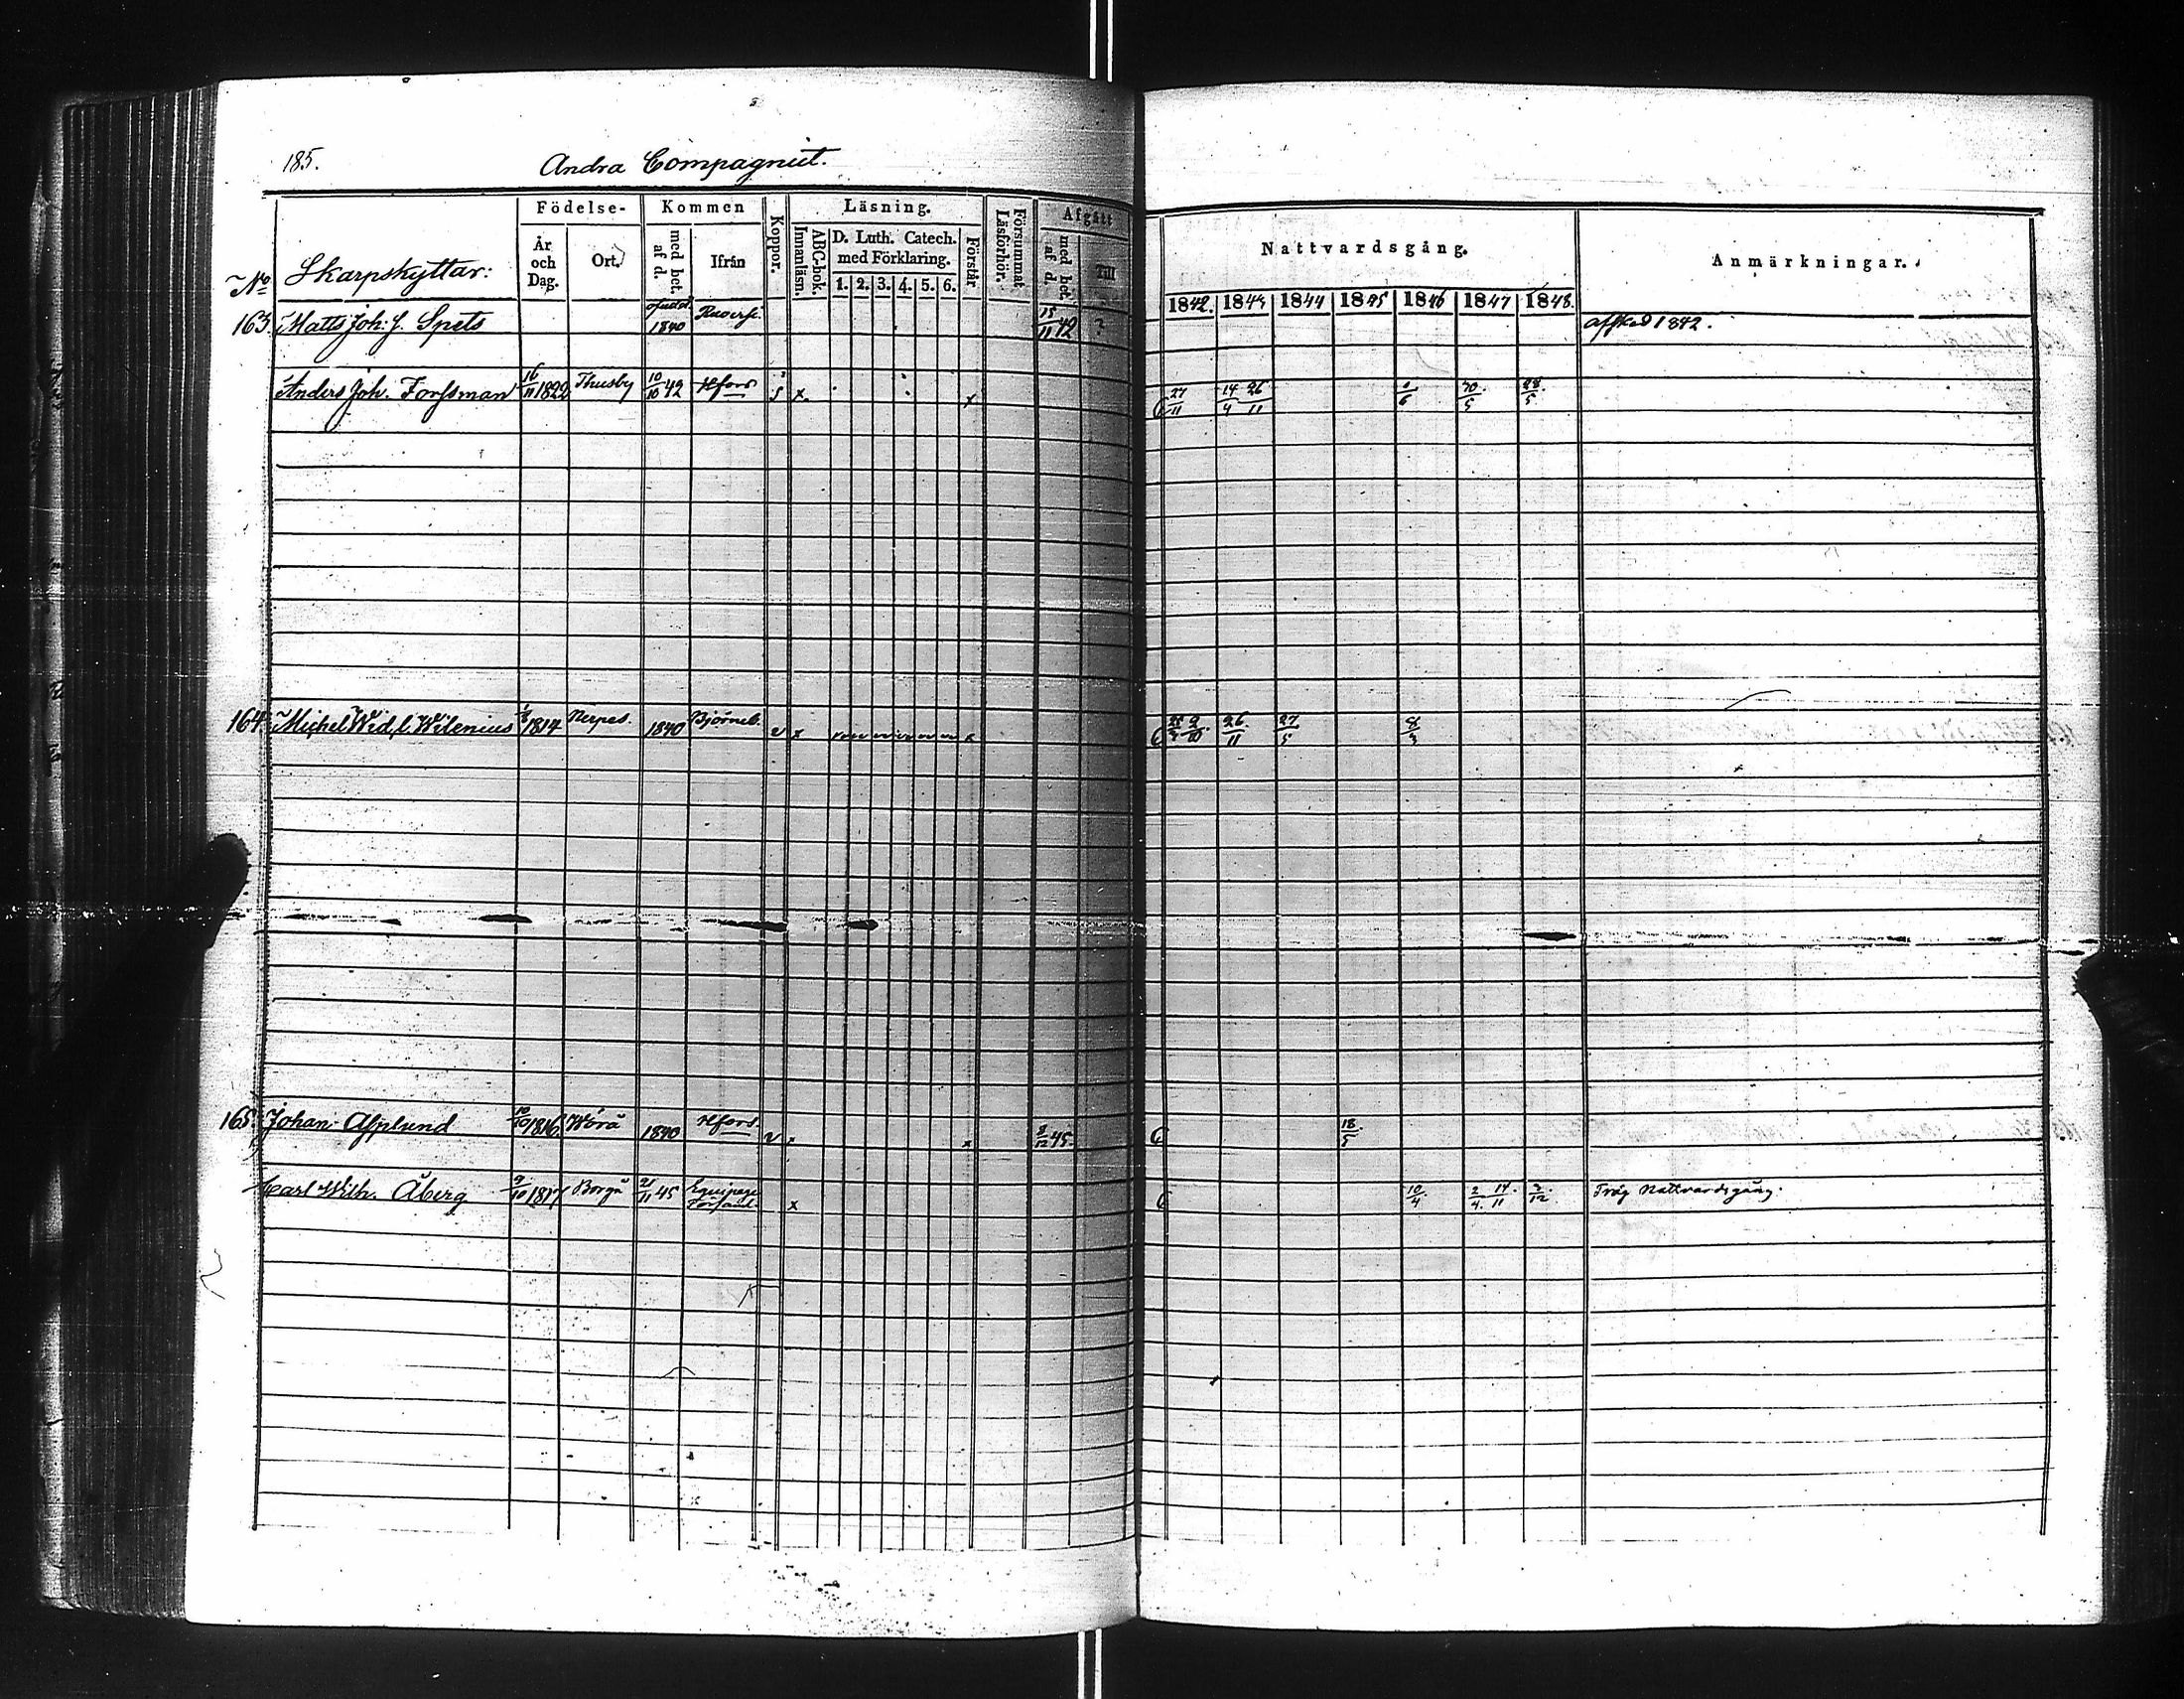 185. Andra Compagniet.
Födelse- Kommen Koppor. Läsning. Försummat Läsförhör. Afgått
No Skarpskyttar: År och Dag. Ort. med bet. af d. Ifrån Innanläsn. ABC-bok. D. Luth. Catech. med Förklaring. 1. 2. 3. 4. 5. 6. Förstår med bet. af d. Till
Nattvardsgång. Anmärkningar.
1842. 1843 1844 1845 1846 1847 1848.
163. Matts Joh: J. Spets 1840 15/11 42 ? afsked 1842.
Anders Joh. Forssman 16/11 1822 Thusby 10/10 42 Hfors x x 27/11 14/4 26/11 /6 30/5 28/5
164 Michel Wid. f. Wilenius 1814 Nerpes. 1840 Björneb. v x x 9/10 26/11 27/5
165. Johan Asplund 10/10 1816 Wörå 1840 Hfors. v x x 8/12 45. 18/5
Carl Wilh. Åberg 9/10 1817 Borgå 21/11 45 Equipage Församl. x 10/4 2/4 14/11 3/12 Trög Nattvardsgång.